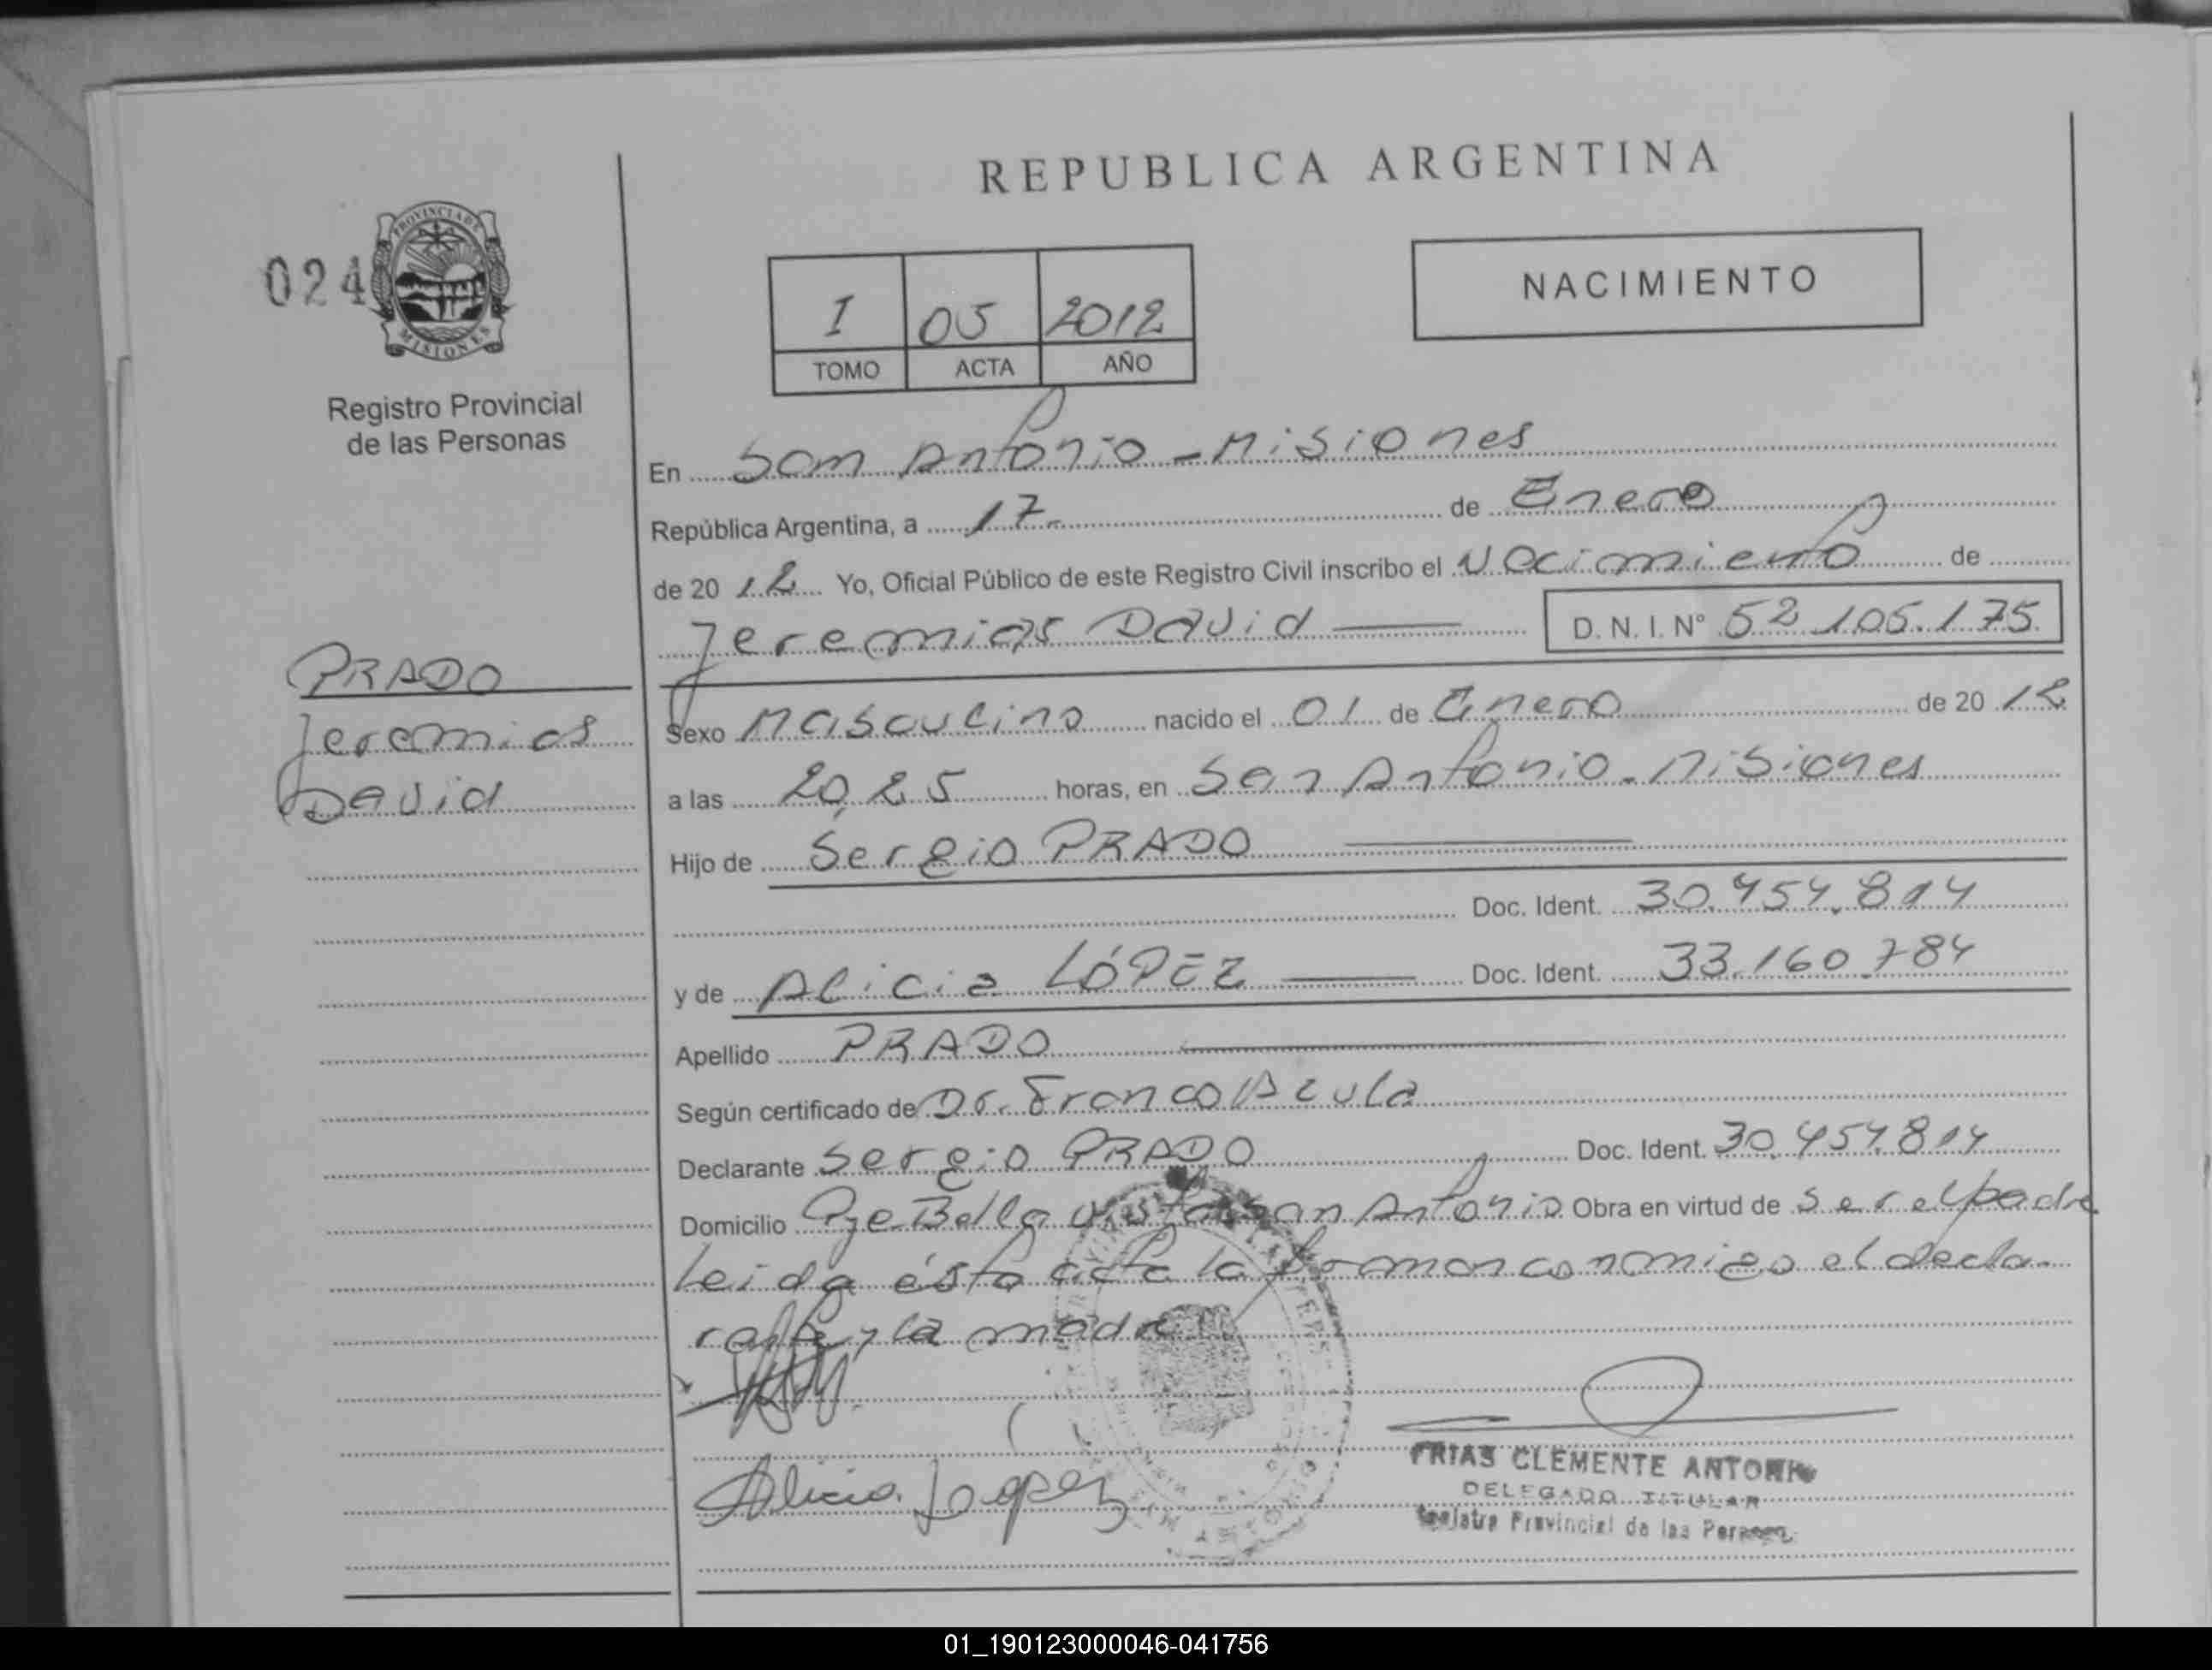 REPUBLICA ARGENTINA
024
PROVINCIA DE
MISIONES
Registro Provincial
de las Personas
I 05 2012
TOMO ACTA AÑO
NACIMIENTO
En San Antonio - Misiones
República Argentina, a 17 de Enero
de 2012 Yo, Oficial Público de este Registro Civil inscribo el Nacimiento de
Jeremias David D. N. I. N° 52.105.175
PRADO
Jeremias
David
Sexo Masculino nacido el 01 de Enero de 2012
a las 20,25 horas, en San Antonio - Misiones
Hijo de Sergio PRADO
Doc. Ident. 30.454.814
y de Alicia LÓPEZ Doc. Ident. 33.160.784
Apellido PRADO
Según certificado de Dr. Franco
Declarante Sergio PRADO Doc. Ident. 30.454.814
Domicilio Pje Bella Vista San Antonio Obra en virtud de Ser el padre
Leida ésta acta la forman conmigo el decla-
rante y la madre
Alicia Lopez
FRIAS CLEMENTE ANTONIO
DELEGADO TITULAR
Registro Provincial de las Personas
01_190123000046-041756